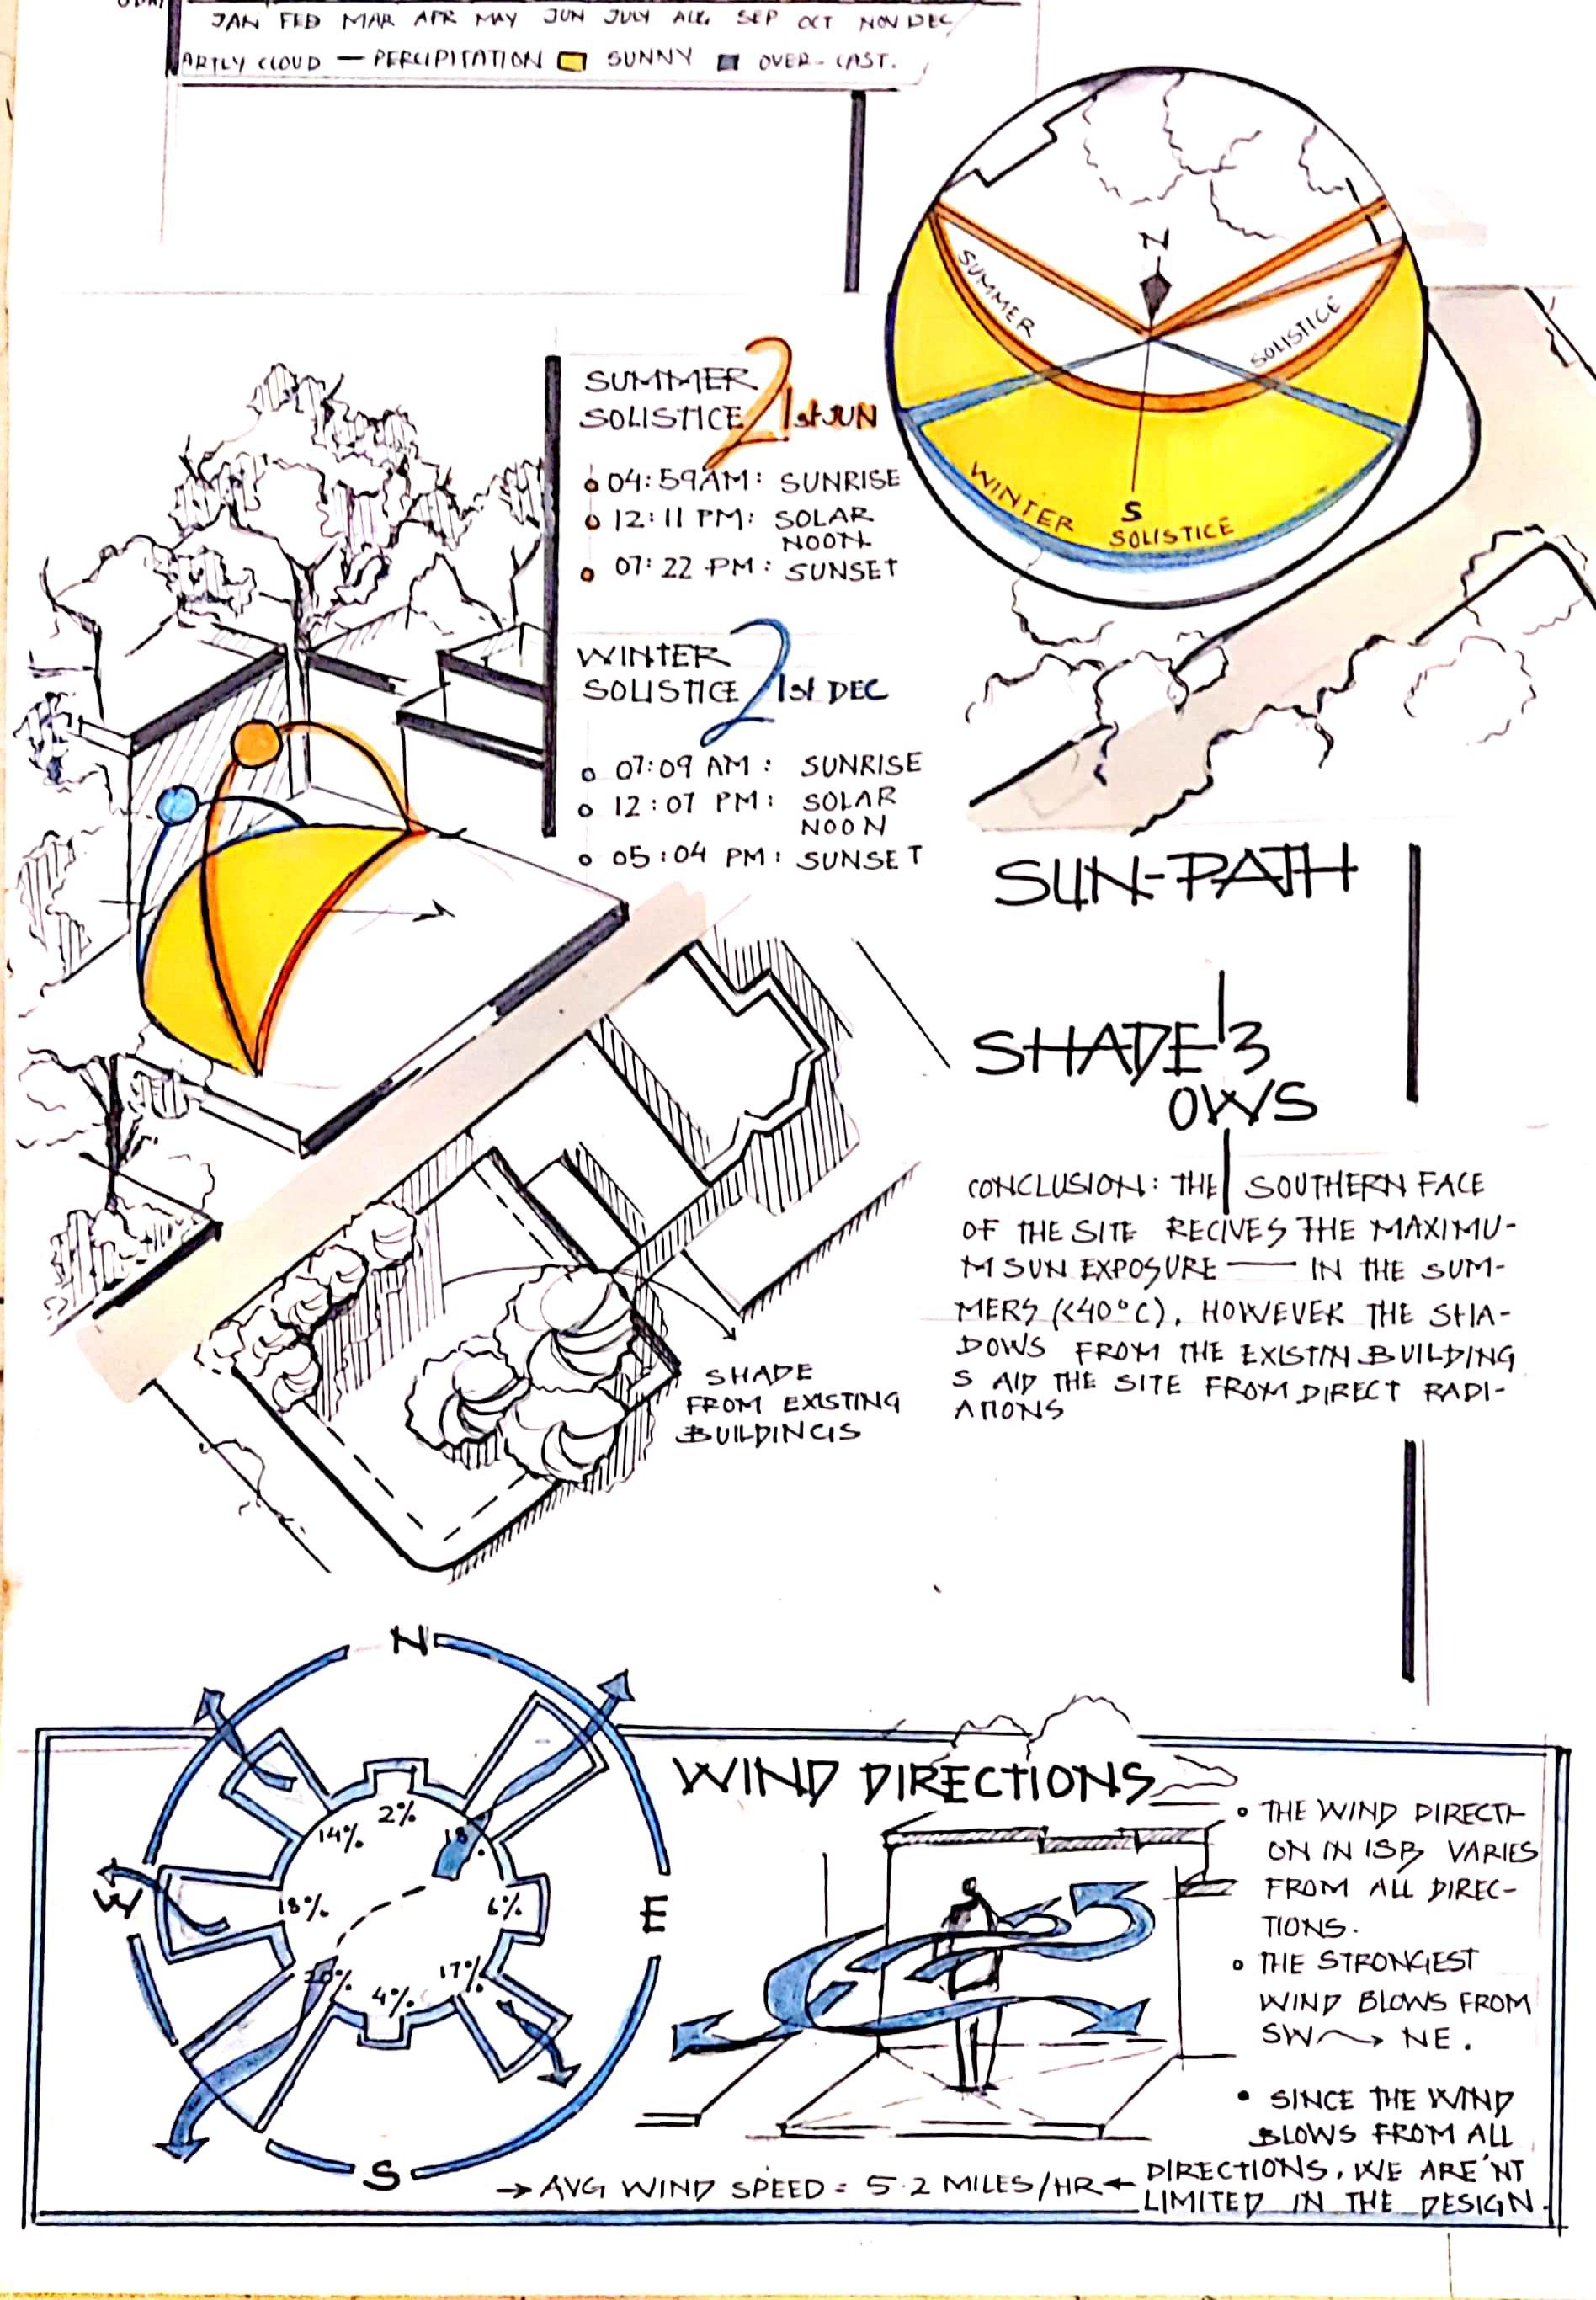 JAN FEB MAR APR MAY JUN JULY AUG SEP OCT NOV DEC
ARTLY CLOUD — PERCIPITATION SUNNY OVER-CAST.
N
SUMMER SOLISTICE
S
WINTER SOLISTICE
SUMMER
SOLISTICE 21st JUN
04:59 AM: SUNRISE
12:11 PM: SOLAR
NOON
07:22 PM: SUNSET
WINTER
SOLISTICE 21st DEC
07:09 AM: SUNRISE
12:07 PM: SOLAR
NOON
05:04 PM: SUNSET
SUN-PATH
SHADE
OWS
CONCLUSION: THE SOUTHERN FACE
OF THE SITE RECIVES THE MAXIMU-
M SUN EXPOSURE — IN THE SUM-
MERS (<40°C). HOWEVER THE SHA-
DOWS FROM THE EXISTIN BUILDING
S AID THE SITE FROM DIRECT RADI-
ATIONS
SHADE
FROM EXISTING
BUILDINGS
N
2%
14%
18%
6%
17%
4%
W
E
S
WIND DIRECTIONS
THE WIND DIRECTI-
ON IN ISB VARIES
FROM ALL DIREC-
TIONS.
THE STRONGEST
WIND BLOWS FROM
SW → NE.
SINCE THE WIND
BLOWS FROM ALL
DIRECTIONS, WE ARE'NT
LIMITED IN THE DESIGN.
→ AVG WIND SPEED = 5.2 MILES/HR ←